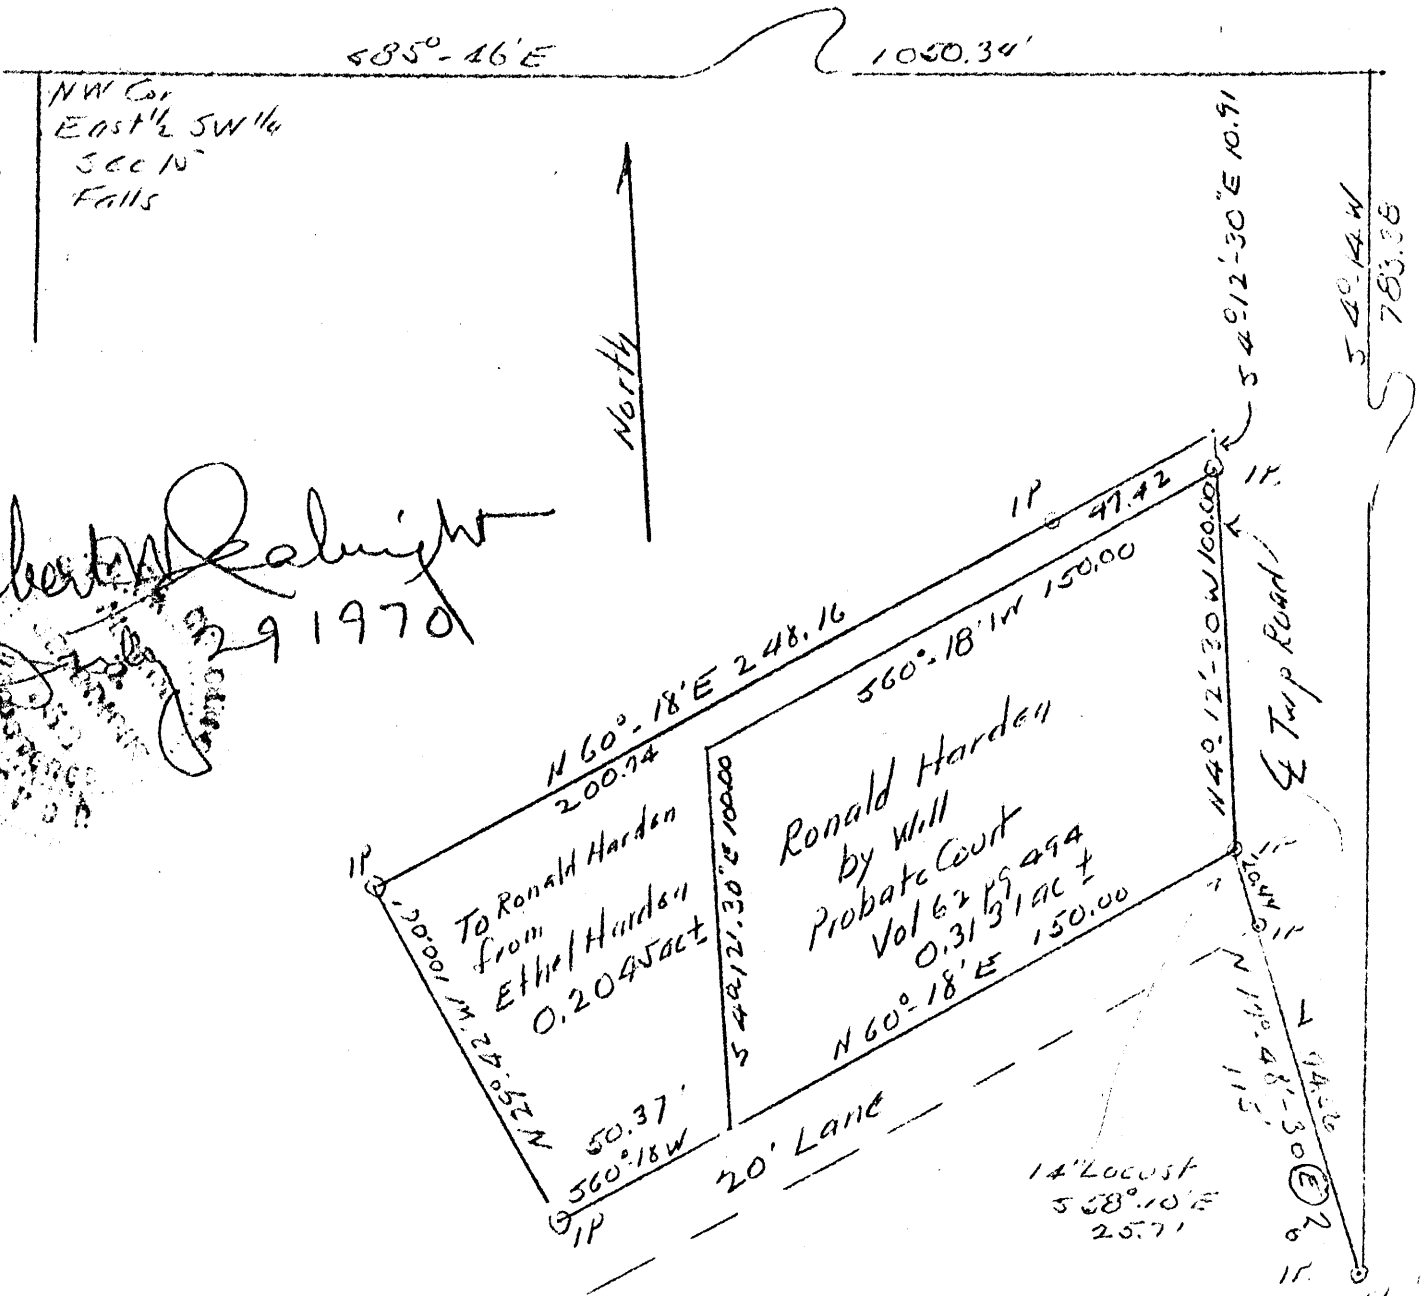 S85°-16'E
1050.34'
NW Cor
East 1/2 SW 1/4
Sec 15
Falls
S 4°-12'-30"E 10.91
S 4°-14 W
783.38
North
July 29 1970
IP
47.42
IP.
N 60°-18'E 248.16
200.74
S60°-18'W 150.00
N4°-12'-30 W 100.00
℄ Twp Road
IP
To Ronald Harden
from
Ethel Harden
0.2045ac±
S 4°-12'-30"E 100.00
Ronald Harden
by Will
Probate Court
Vol 62 Pg 494
0.3131ac±
N 60°-18'E 150.00
N 29°-42'W 100.00
50.37'
S60°-18W
IP
20' Lane
14" Locust
S 58°-10'E
25.71
IP
IP
IP.